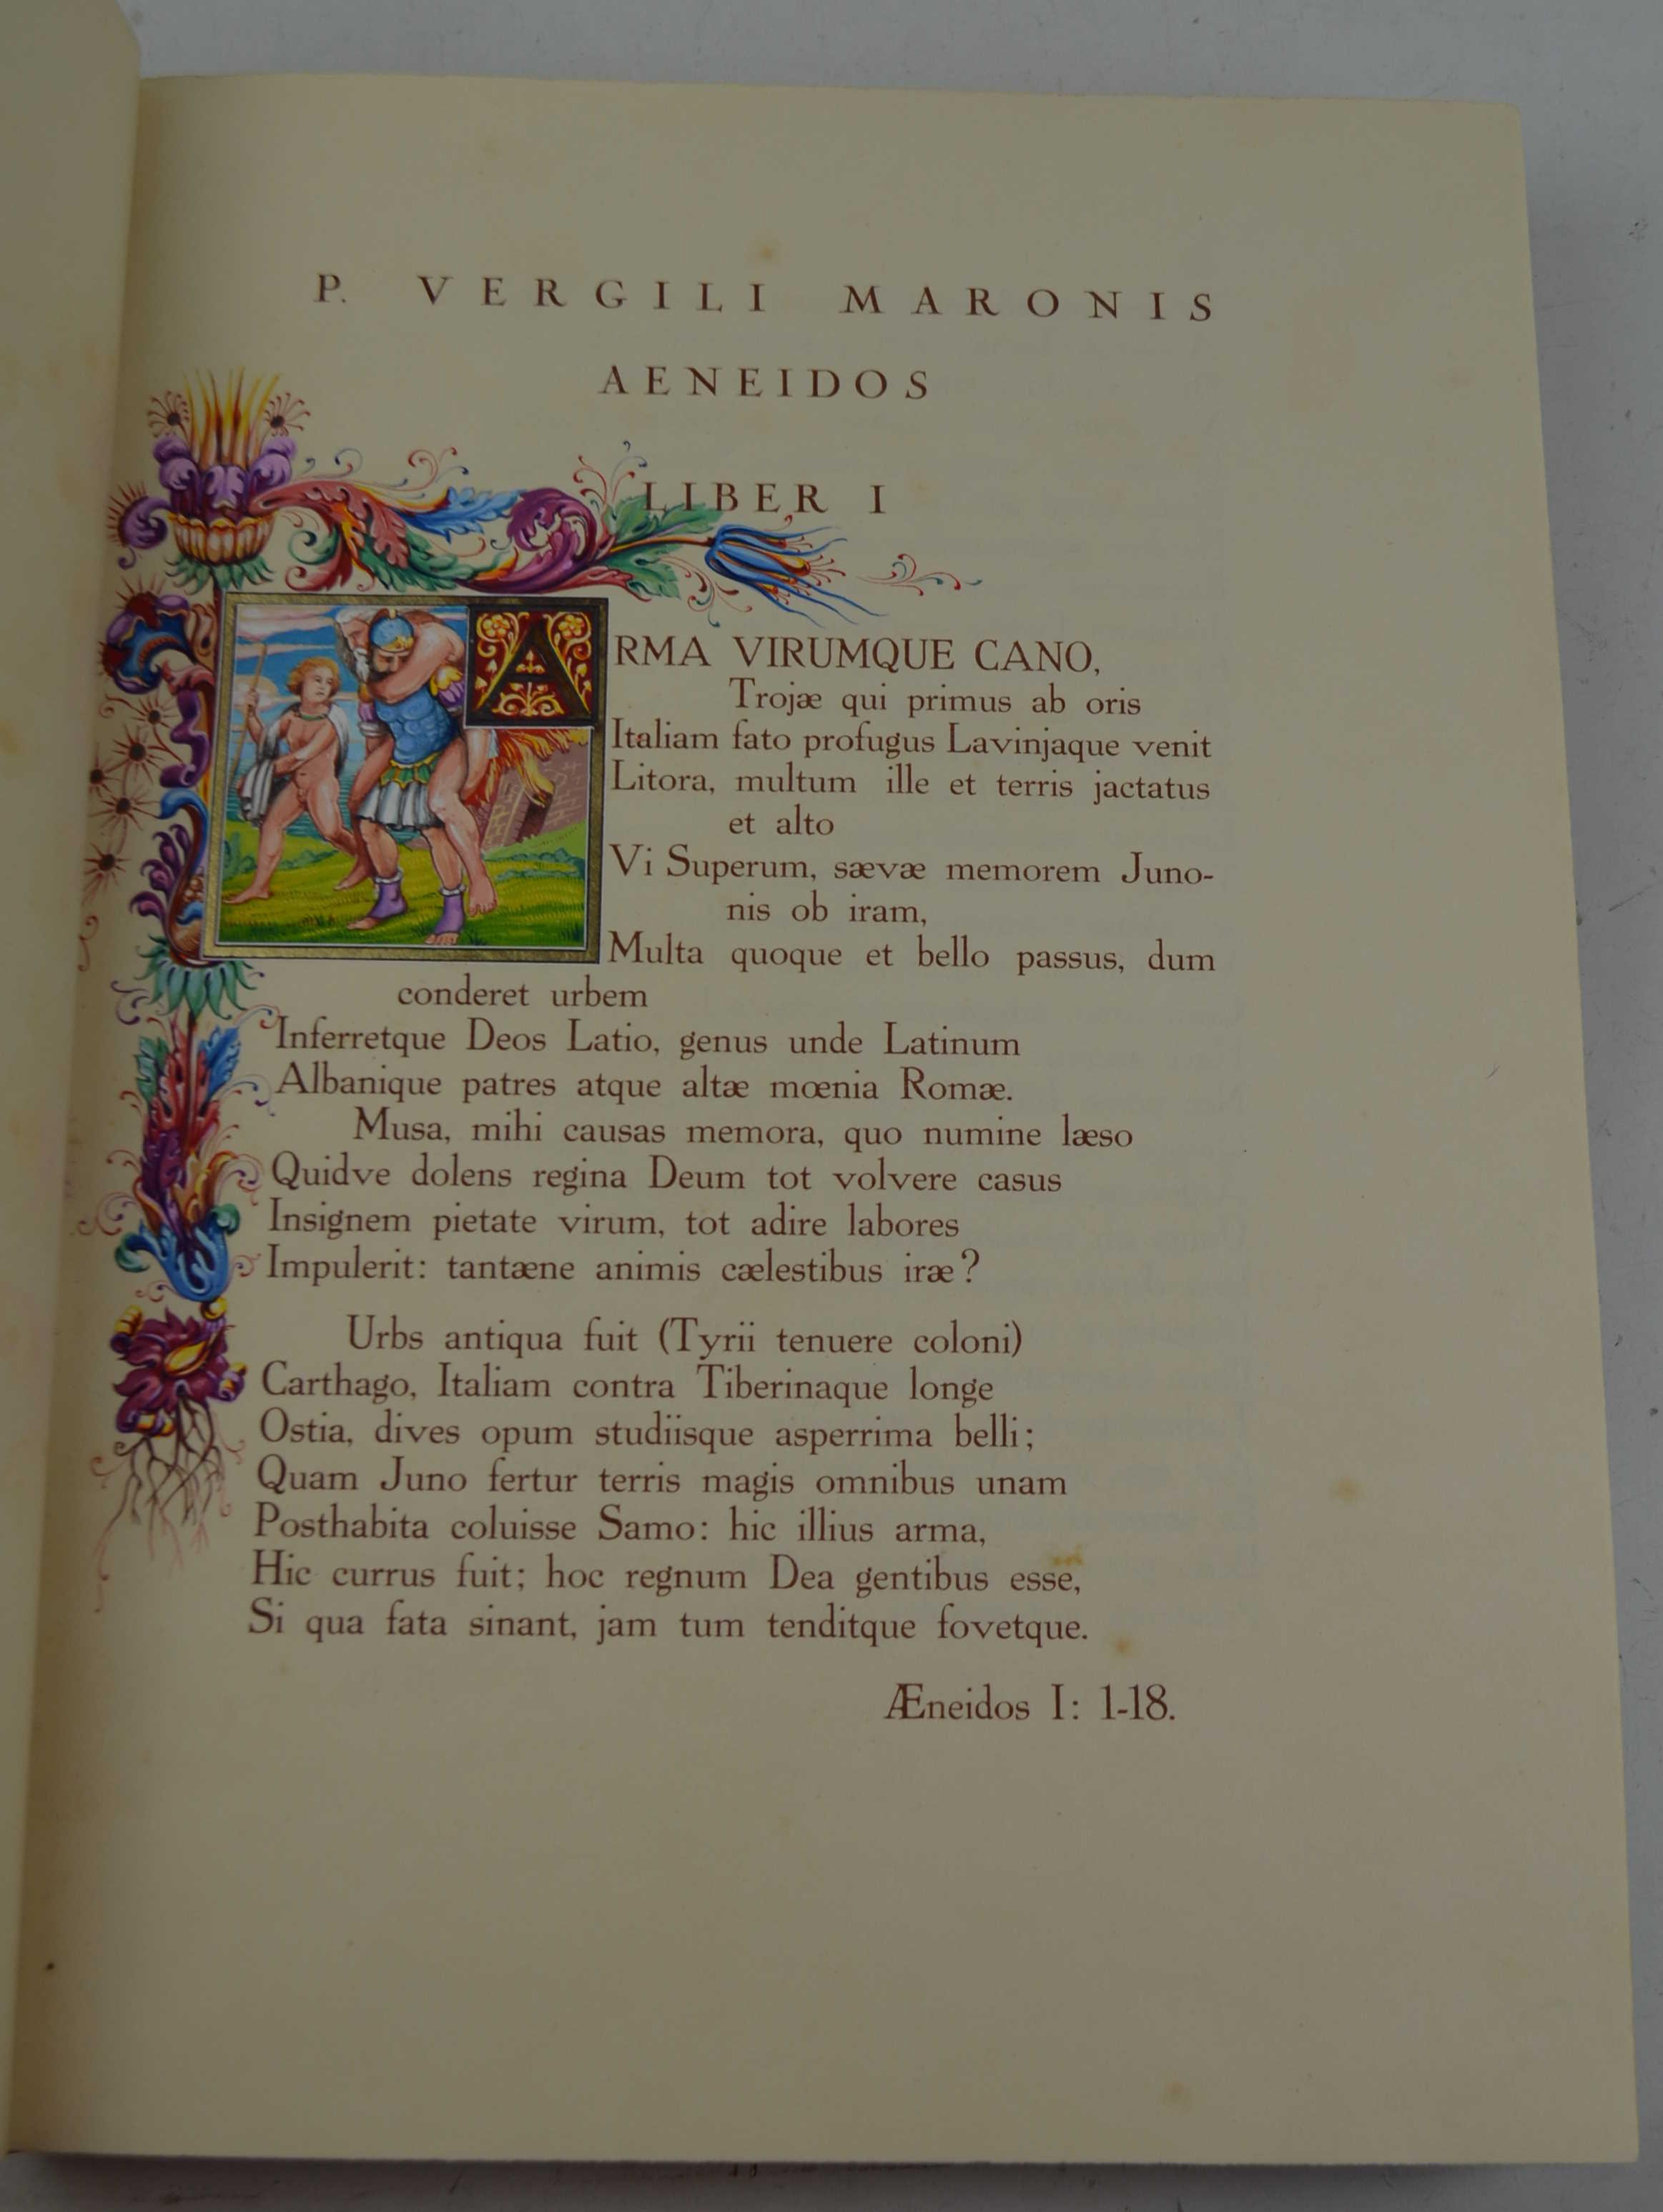 P. VERGILI MARONIS
AENEIDOS
LIBER I
ARMA VIRUMQUE CANO,
Trojæ qui primus ab oris
Italiam fato profugus Lavinjaque venit
Litora, multum ille et terris jactatus
et alto
Vi Superum, sævæ memorem Juno-
nis ob iram,
Multa quoque et bello passus, dum
conderet urbem
Inferretque Deos Latio, genus unde Latinum
Albanique patres atque altæ mœnia Romæ.
Musa, mihi causas memora, quo numine læso
Quidve dolens regina Deum tot volvere casus
Insignem pietate virum, tot adire labores
Impulerit: tantæne animis cælestibus iræ?
Urbs antiqua fuit (Tyrii tenuere coloni)
Carthago, Italiam contra Tiberinaque longe
Ostia, dives opum studiisque asperrima belli;
Quam Juno fertur terris magis omnibus unam
Posthabita coluisse Samo: hic illius arma,
Hic currus fuit; hoc regnum Dea gentibus esse,
Si qua fata sinant, jam tum tenditque fovetque.
Æneidos I: 1-18.